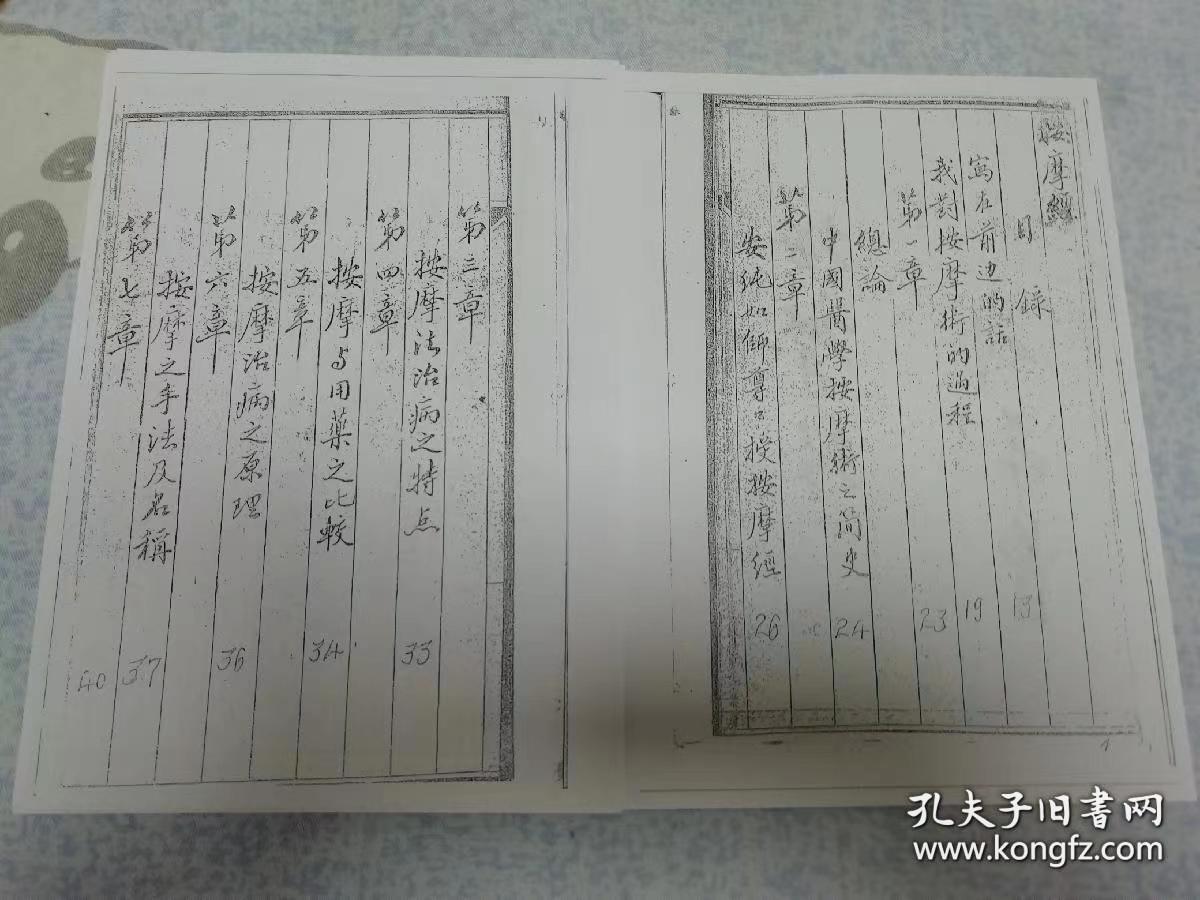 按摩經
目錄
寫在前边的話 13
我對按摩術的過程 19
第一章 23
總論
中國醫學按摩術之简史 24
第二章
安纯如师尊口授按摩經 26
第三章
按摩法治病之特点 33
第四章
按摩与用藥之比較 34
第五章
按摩治病之原理 36
第六章
按摩之手法及名稱 37
第七章 40
孔夫子旧書网
www.kongfz.com